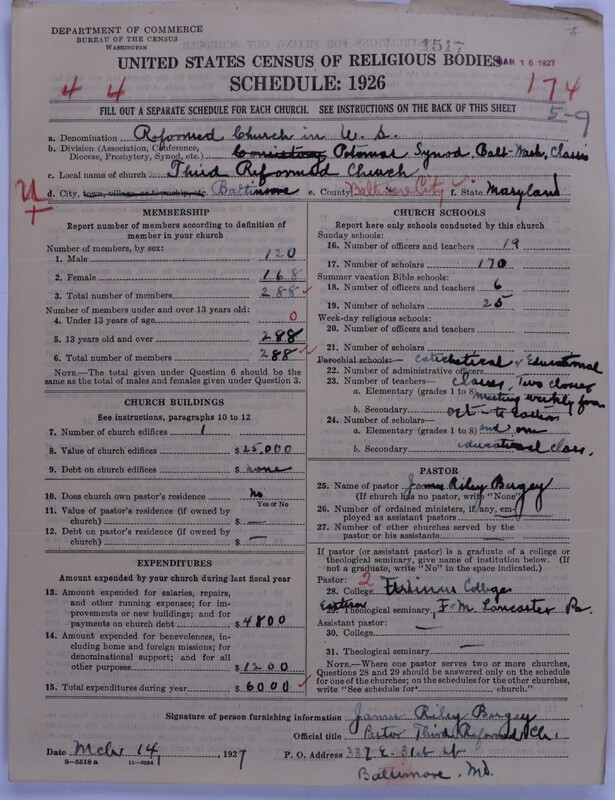 DEPARTMENT OF COMMERCE
BUREAU OF THE CENSUS
WASHINGTON
1517
MAR 16 1927
UNITED STATES CENSUS OF RELIGIOUS BODIES
4 4 SCHEDULE: 1926 174
FILL OUT A SEPARATE SCHEDULE FOR EACH CHURCH. SEE INSTRUCTIONS ON THE BACK OF THIS SHEET
5-9
a. Denomination Reformed Church in U. S.
b. Division (Association, Conference, Diocese, Presbytery, Synod, etc.) Consistory Potomac Synod, Balt-Wash, Classis
c. Local name of church Third Reformed Church
d. City, town, village, or township, etc. Baltimore e. County Baltimore City f. State Maryland
MEMBERSHIP
Report number of members according to definition of member in your church
Number of members, by sex:
1. Male 120
2. Female 168
3. Total number of members 288
Number of members under and over 13 years old:
4. Under 13 years of age 0
5. 13 years old and over 288
6. Total number of members 288
NOTE.—The total given under Question 6 should be the same as the total of males and females given under Question 3.
CHURCH BUILDINGS
See instructions, paragraphs 10 to 12
7. Number of church edifices 1
8. Value of church edifices $ 25,000
9. Debt on church edifices $ none
10. Does church own pastor's residence? No
Yes or No
11. Value of pastor's residence (if owned by church) $ —
12. Debt on pastor's residence (if owned by church) $ —
EXPENDITURES
Amount expended by your church during last fiscal year
13. Amount expended for salaries, repairs, and other running expenses; for improvements or new buildings; and for payments on church debt $ 4800
14. Amount expended for benevolences, including home and foreign missions; for denominational support; and for all other purposes $ 1200
15. Total expenditures during year $ 6000
CHURCH SCHOOLS
Report here only schools conducted by this church
Sunday schools:
16. Number of officers and teachers 19
17. Number of scholars 170
Summer vacation Bible schools:
18. Number of officers and teachers 6
19. Number of scholars 25
Week-day religious schools:
20. Number of officers and teachers
21. Number of scholars
Parochial schools— Catechetical & Educational
22. Number of administrative officers
23. Number of teachers— classes, Two classes
a. Elementary (grades 1 to 8) meeting weekly from
b. Secondary Oct — to Easter
24. Number of scholars—
a. Elementary (grades 1 to 8) and one
b. Secondary educational class.
PASTOR
25. Name of pastor James Riley Bergey
(If church has no pastor, write "None")
26. Number of ordained ministers, if any, employed as assistant pastors —
27. Number of other churches served by the pastor or his assistants —
If pastor (or assistant pastor) is a graduate of a college or theological seminary, give name of institution below. (If not a graduate, write "No" in the space indicated.)
Pastor: 2
28. College Ursinus College
Eastern
29. Theological seminary F. M. Lancaster Pa.
Assistant pastor:
30. College —
31. Theological seminary —
NOTE.—Where one pastor serves two or more churches, Questions 28 and 29 should be answered only on the schedule for one of the churches; on the schedules for the other churches, write "See schedule for church."
Signature of person furnishing information James Riley Bergey
Official title Pastor Third Reformed Ch.
Date Mch 14, 1927 P. O. Address 337 E. 31st St
8-5518a 11-9034
Baltimore, Md.